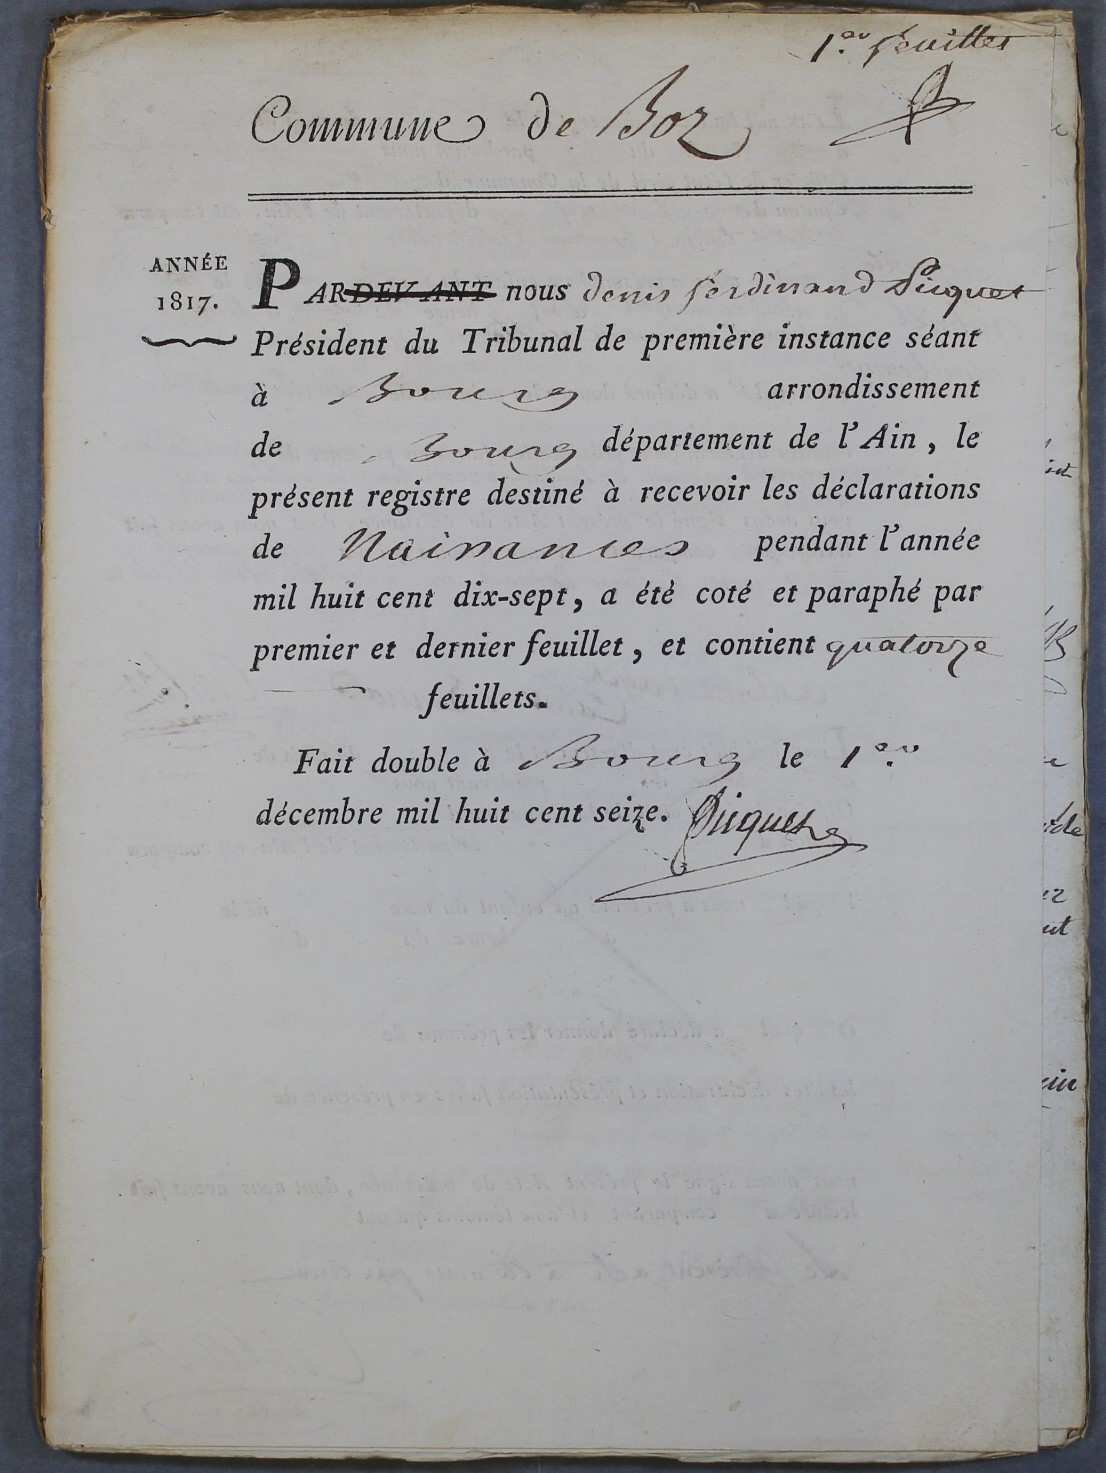 1er feuillet
Commune de Boz
ANNÉE
1817.
PARDEVANT nous denis ferdinand Picquet
Président du Tribunal de première instance séant
à Bourg arrondissement
de Bourg département de l'Ain, le
présent registre destiné à recevoir les déclarations
de Naissances pendant l'année
mil huit cent dix-sept, a été coté et paraphé par
premier et dernier feuillet, et contient quatorze
feuillets.
Fait double à Bourg le 1er
décembre mil huit cent seize. Picquet